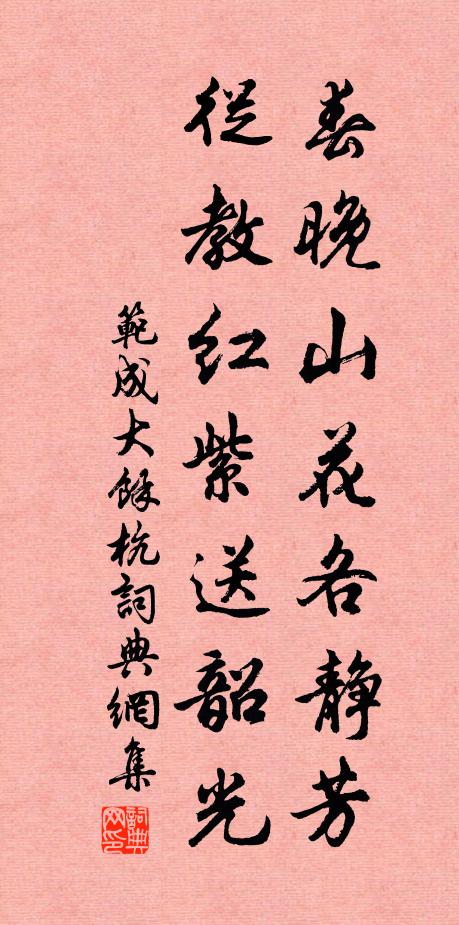 春晚山花各静芳
從教红紫送韶光
範成大餘杭詞典網集
詞典
网印